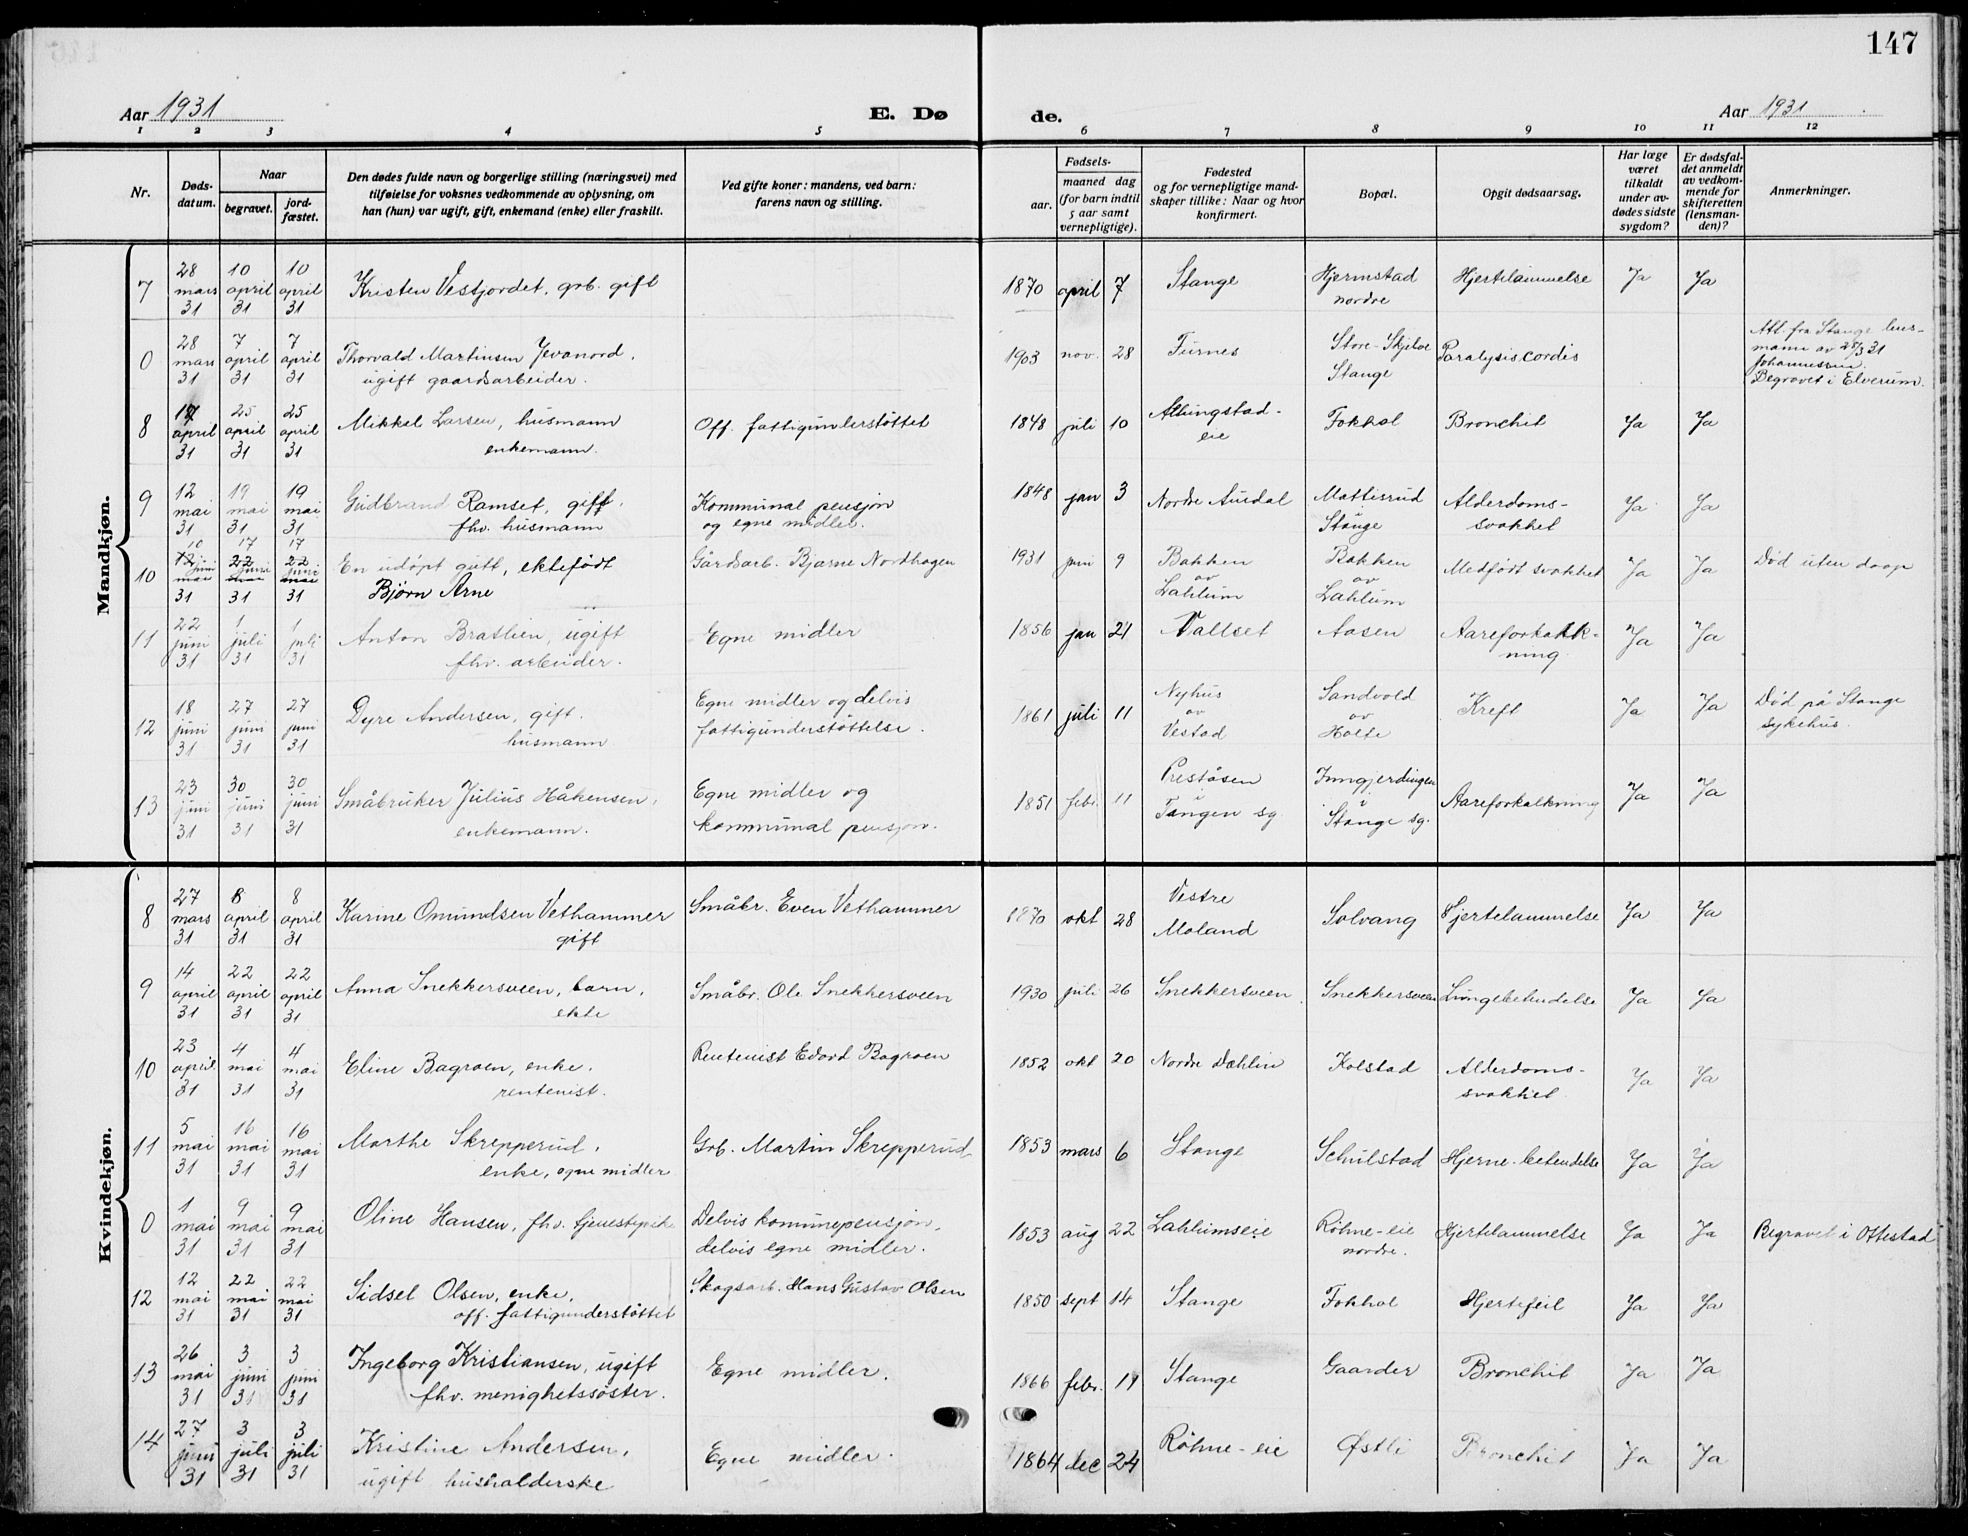 147
Aar 1931
E. Dø
de.
Aar 1931
1 2 3 4 5 6 7 8 9 10 11 12
Nr.
Døds-
datum.
Naar
begravet.
jord-
fæstet.
Den dødes fulde navn og borgerlige stilling (næringsvei) med
tilføielse for voksnes vedkommende av oplysning, om
han (hun) var ugift, gift, enkemand (enke) eller fraskilt.
Ved gifte koner: mandens, ved barn:
farens navn og stilling.
Fødsels-
aar.
maaned dag
(for barn indtil
5 aar samt
vernepligtige).
Fødested
og for vernepligtige mand-
skaper tillike: Naar og hvor
konfirmert.
Bopæl.
Opgit dødsaarsag.
Har læge
været
tilkaldt
under av-
dødes sidste
sygdom?
Er dødsfal-
det anmeldt
av vedkom-
mende for
skifteretten
(lensman-
den)?
Anmerkninger.
Mandkjøn.
7
28 mars 31
10 april 31
10 april 31
Kristen Vestjordet, grb. gift
1870 april 7
Stange
Hjermstad
nordre
Hjertelammelse
Ja
Ja
0
28 mars 31
7 april 31
7 april 31
Thorvald Martinsen Jevanord,
ugift gaardsarbeider.
1903 nov. 28
Furnes
Store-
Stange
Paralysis cordis
Att. fra Stange lens-
mann av 28/3 31
Johannessen.
Begravet i Elverum.
8
17 april 31
25 april 31
25 april 31
Mikkel Larsen, husmann
enkemann.
Off. fattigunderstøttet
1848 juli 10
eie
Fokhol
Bronchit
Ja
Ja
9
12 mai 31
19 mai 31
19 mai 31
Gudbrand Ramset, gift,
fhv. husmann
Kommunal pensjon
og egne midler.
1848 jan 3
Nordre Aurdal
Mattisrud
i
Stange
Alderdoms-
svakhet
Ja
Ja
10
10 12 juni mai 31
17 22 juni mai 31
17 22 juni mai 31
En udøpt gutt, ektefødt
Bjørn Arne
Gårdsarb. Bjarne Nordhagen
1931 juni 9
Bakken
av
Lahlum
Bakken
av
Lahlum
Medfødt svakhet
Ja
Ja
Død uten daap
11
22 juni 31
1 juli 31
1 juli 31
Anton Bratlien, ugift
fhv. arbeider.
Egne midler
1856 jan 21
Vallset
Aasen
Aareforkalk-
ning.
Ja
Ja
12
18 juni 31
27 juni 31
27 juni 31
Dyre Andersen, gift.
husmann
Egne midler og delvis
fattigunderstøttelse.
1861 juli 11
Nyhus
av
Vestad
Sandvold
av
Holte
Kreft
Ja
Ja
Død på Stange
sykehus.
13
23 juni 31
30 juni 31
30 juni 31
Småbruker Julius Håkensen,
enkemann.
Egne midler og
kommunal pensjon.
1851 febr. 11
Preståsen
i
Tangen sg
Inngjerdingen
i
Stange sg.
Aareforkalkning
Ja
Ja
Kvindekjøn.
8
27 mars 31
8 april 31
8 april 31
Karine Omundsen Vethammer
gift
Småbr. Even Vethammer
1870 okt 28
Vestre
Moland
Solvang
Hjertelammelse
Ja
Ja
9
14 april 31
22 april 31
22 april 31
Anna Snekkersveen, barn,
ekte
Småbr. Ole Snekkersveen
1930 juli 26
Snekkersveen
Snekkersveen
Lungebetendelse
Ja
Ja
10
23 april 31
4 mai 31
4 mai 31
Eline Bagroen, enke,
rentenist.
Rentenist Edvard Bagroen
1852 okt 20
Nordre Dæhlin
Kolstad
Alderdoms-
svakhet
Ja
Ja
11
5 mai 31
16 mai 31
16 mai 31
Marthe Skrepperud,
enke, egne midler
Grb. Martin Skrepperud
1853 mars 6
Stange
Schulstad
Hjerne-betendelse
Ja
Ja
0
1 mai 31
9 mai 31
9 mai 31
Oline Hansen, fhv. tjenestepike
Delvis komunepensjon,
delvis egne midler.
1853 aug 22
Lahlumseie
Røhne-eie
nordre.
Hjertelammelse
Ja
Ja
Begravet i Ottestad
12
12 mai 31
22 mai 31
22 mai 31
Sidsel Olsen, enke,
off. fattigunderstøttet
Skogsarb. Hans Gustav Olsen
1850 sept 14
Stange
Fokhol
Hjertefeil
Ja
Ja
13
26 mai 31
3 juni 31
3 juni 31
Ingeborg Kristiansen, ugift
fhv. menighetssøster.
Egne midler.
1866 febr. 19
Stange
Gaarder
Bronchit
Ja
Ja
14
27 juni 31
3 juli 31
3 juli 31
Kristine Andersen,
ugift husholderske
Egne midler.
1864 dec 24
Røhne-eie
Østli
Bronchit
Ja
Ja